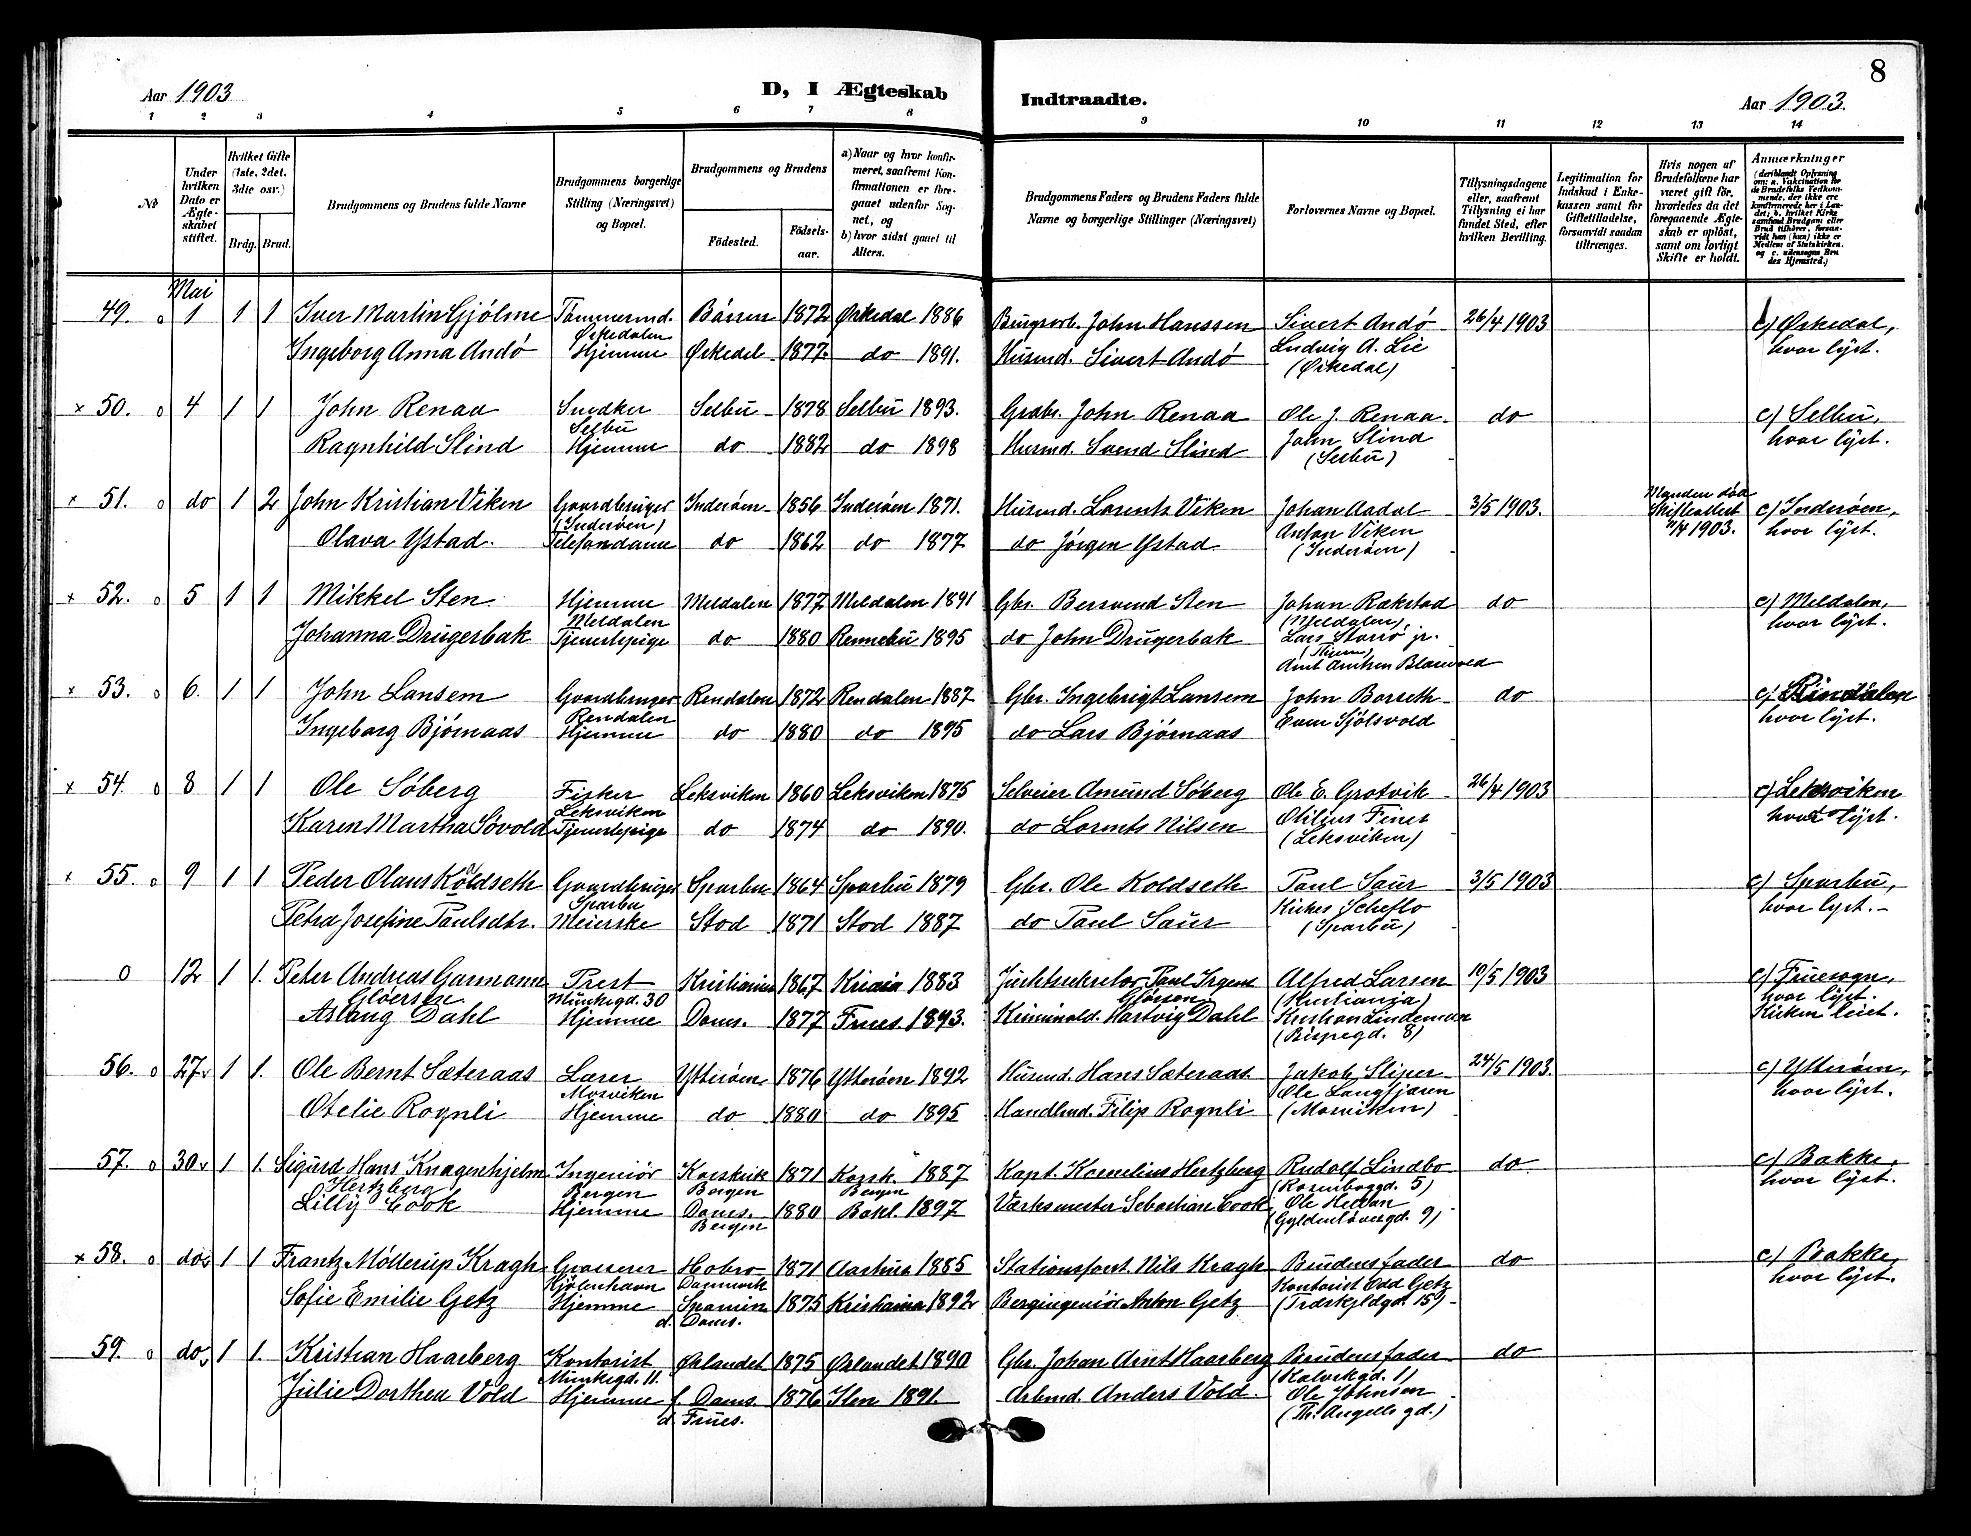 8
Aar 1903
D, I Ægteskab
Indtraadte.
Aar 1903.
1 2 3 4 5 6 7 8 9 10 11 12 13 14
No
Under hvilken Dato er Ægteskabet stiftet.
Hvilket Gifte (1ste, 2det, 3die osv.)
Brdg. Brud.
Brudgommens og Brudens fulde Navne
Brudgommens borgerlige Stilling (Næringsvei) og Bopæl.
Brudgommens og Brudens
Fødested.
Fødselsaar.
a) Naar og hvor konfirmeret, saafremt Konfirmationen er foregaaet udenfor Sognet, og
b) hvor sidst gaaet til Alters.
Brudgommens Faders og Brudens Faders fulde Navne og borgerlige Stillinger (Næringsvei)
Forlovernes Navne og Bopæl.
Tillysningsdagene eller, saafremt Tillysning ei har fundet Sted, efter hvilken Bevilling.
Legitimation for Indskud i Enkekassen samt for Giftetilladelse, forsaavidt saadan tiltrænges.
Hvis nogen af Brudefolkene har været gift før, hvorledes da det foregaaende Ægteskab er opløst, samt om lovligt Skifte er holdt.
Anmærkninger
(deriblandt Oplysning om: a. Vakcination for de Brudefolks Vedkommende, der ikke ere konfirmerede her i Landet; b. hvilket Kirkesamfund Brudgom eller Brud tilhører, forsaavidt han (hun) ikke er Medlem af Statskirken, og c. udensogns Brudes Hjemsted.)
Mai
49. o 1 1 1 Iver Martin Gjølme Tømmermd. Børsen 1872 Ørkedal 1886 Brugsarb. John Hanssen Sivert Andø 26/4 1903 c) Ørkedal,
Ørkedalen Ludvig A. Lie hvor lyst.
Ingeborg Anna Andø Hjemme Ørkedal 1877 do 1891. Husmd. Sivert Andø (Ørkedal)
x 50. o 4 1 1 John Renaa Snedker Selbu 1878 Selbu 1893. Grdbr. John Renaa Ole J. Renaa do c) Selbu,
Selbu John Slind hvor lyst.
Ragnhild Slind Hjemme do 1882 do 1898 Husmd. Svend Slind (Selbu)
x 51. o do 1 2 John Kristian Viken Gaardbruger Inderøen 1856 Inderøen 1871. Husmd. Lorents Viken Johan Aadal 3/5 1903. Manden død c) Inderøen,
(Inderøen) Anton Viken Skifteattest hvor lyst.
Olava Ystad. Telefondame do 1862 do 1877 do Jørgen Ystad (Inderøen) 1903.
x 52. o 5 1 1 Mikkel Sten Hjemme Meldalen 1877 Meldalen 1891 Gbr. Bersvend Sten Johan Rækstad do c) Meldalen,
Meldalen (Meldalen), hvor lyst.
Johanna Drugerbak Tjenestepige do 1880 Rennebu 1895 do John Drugerbak Lars Storrø jr.
x 53. o 6. 1 1 John Lansem Gaardbruger Rendalen 1872 Rendalen 1887 Gbr. Ingebrigt Lansem John Borseth do c) Rindalen
Rendalen Even Sjølsvold hvor lyst.
Ingeborg Bjørnaas Hjemme do 1880 do 1895 do Lars Bjørnaas
x 54. o 8 1 1 Ole Søberg Fisker Leksviken 1860 Leksviken 1875 Selveier Amund Søberg Ole E. Grotvik 26/4 1903 c) Leksviken
Leksviken Otilius Fines hvor lyst.
Karen Martha Søvold Tjenestepige do 1874 do 1890. do Lorents Nilsen (Leksviken)
x 55. o 9 1 1. Peder Olaus Koldseth Gaardbruger Sparbu 1864 Sparbu 1879 Gbr. Ole Koldseth Paul Saur 3/5 1903 c) Sparbu,
Sparbu Scheflo hvor lyst.
Petra Josefine Paulsdtr. Meierske Stod 1871 Stod 1887 do Paul Saur (Sparbu)
o 12 1 1. Peter Andreas Garmann Prest Kristiania 1867 Kriania 1883 Paul Irgens Alfred Larsen 10/5 1903 c) Fruesogn,
Gløersen Munkegd. 30 (Kristiania) hvor lyst.
Aslaug Dahl Hjemme Doms. 1877 Frues 1893. Hartvig Dahl Kristian Lindeman Kirken leiet.
(Bispegd. 8)
56. o 27 1 1. Ole Bernt Sæteraas Lærer Ytterøen 1876 Ytterøen 1892 Husmd. Hans Sæteraas Jakob Sliper 24/5 1903. c) Ytterøen,
Mosviken Ole Langfjæren hvor lyst.
Otelie Rognli Hjemme do 1880 do 1895 Handlmd. Filip Rognli (Mosviken)
57. o 30 1 1. Sigurd Hans Knagenhjelm Ingeniør Korskirk 1871 Korsk. 1887 Kapt. Kornelius Hertzberg Rudolf Lindbo do c) Bakke,
Hertzberg Bergen Bergen Bergen (Rosenborggd. 5) hvor lyst.
Lilly Cook Hjemme Doms. 1880 Bakl. 1897 Værksmester Sebastian Cook Ole Hedan
Bergen (Gyldenløvesgd. 9)
x 58. o do 1 1 Frantz Møllerup Kragh Grosserer Hobro 1871 Aarhus 1885 Stationsforst. Nils Kragh Brudens fader do c) Bakke,
Kjøbenhavn Danmark Kontorist Odd Getz hvor lyst.
Sofie Emilie Getz Hjemme Spanien 1875 Kristiania 1892 Bergingeniør Anton Getz (Tordenskjoldgd. 15)
d. Doms.
59. o do 1 1. Kristian Haarberg Kontorist Ørlandet 1875 Ørlandet 1890 Gbr. Johan Arnt Haarberg Brudens fader do
Munkegd. 11. (Kalvskgd. 1)
Julie Dorthea Vold Hjemme f. Doms. 1876 Ilen 1891. Arbmd. Anders Vold. Ole Johnsen
d. Frues. (Th. Angells gd.)